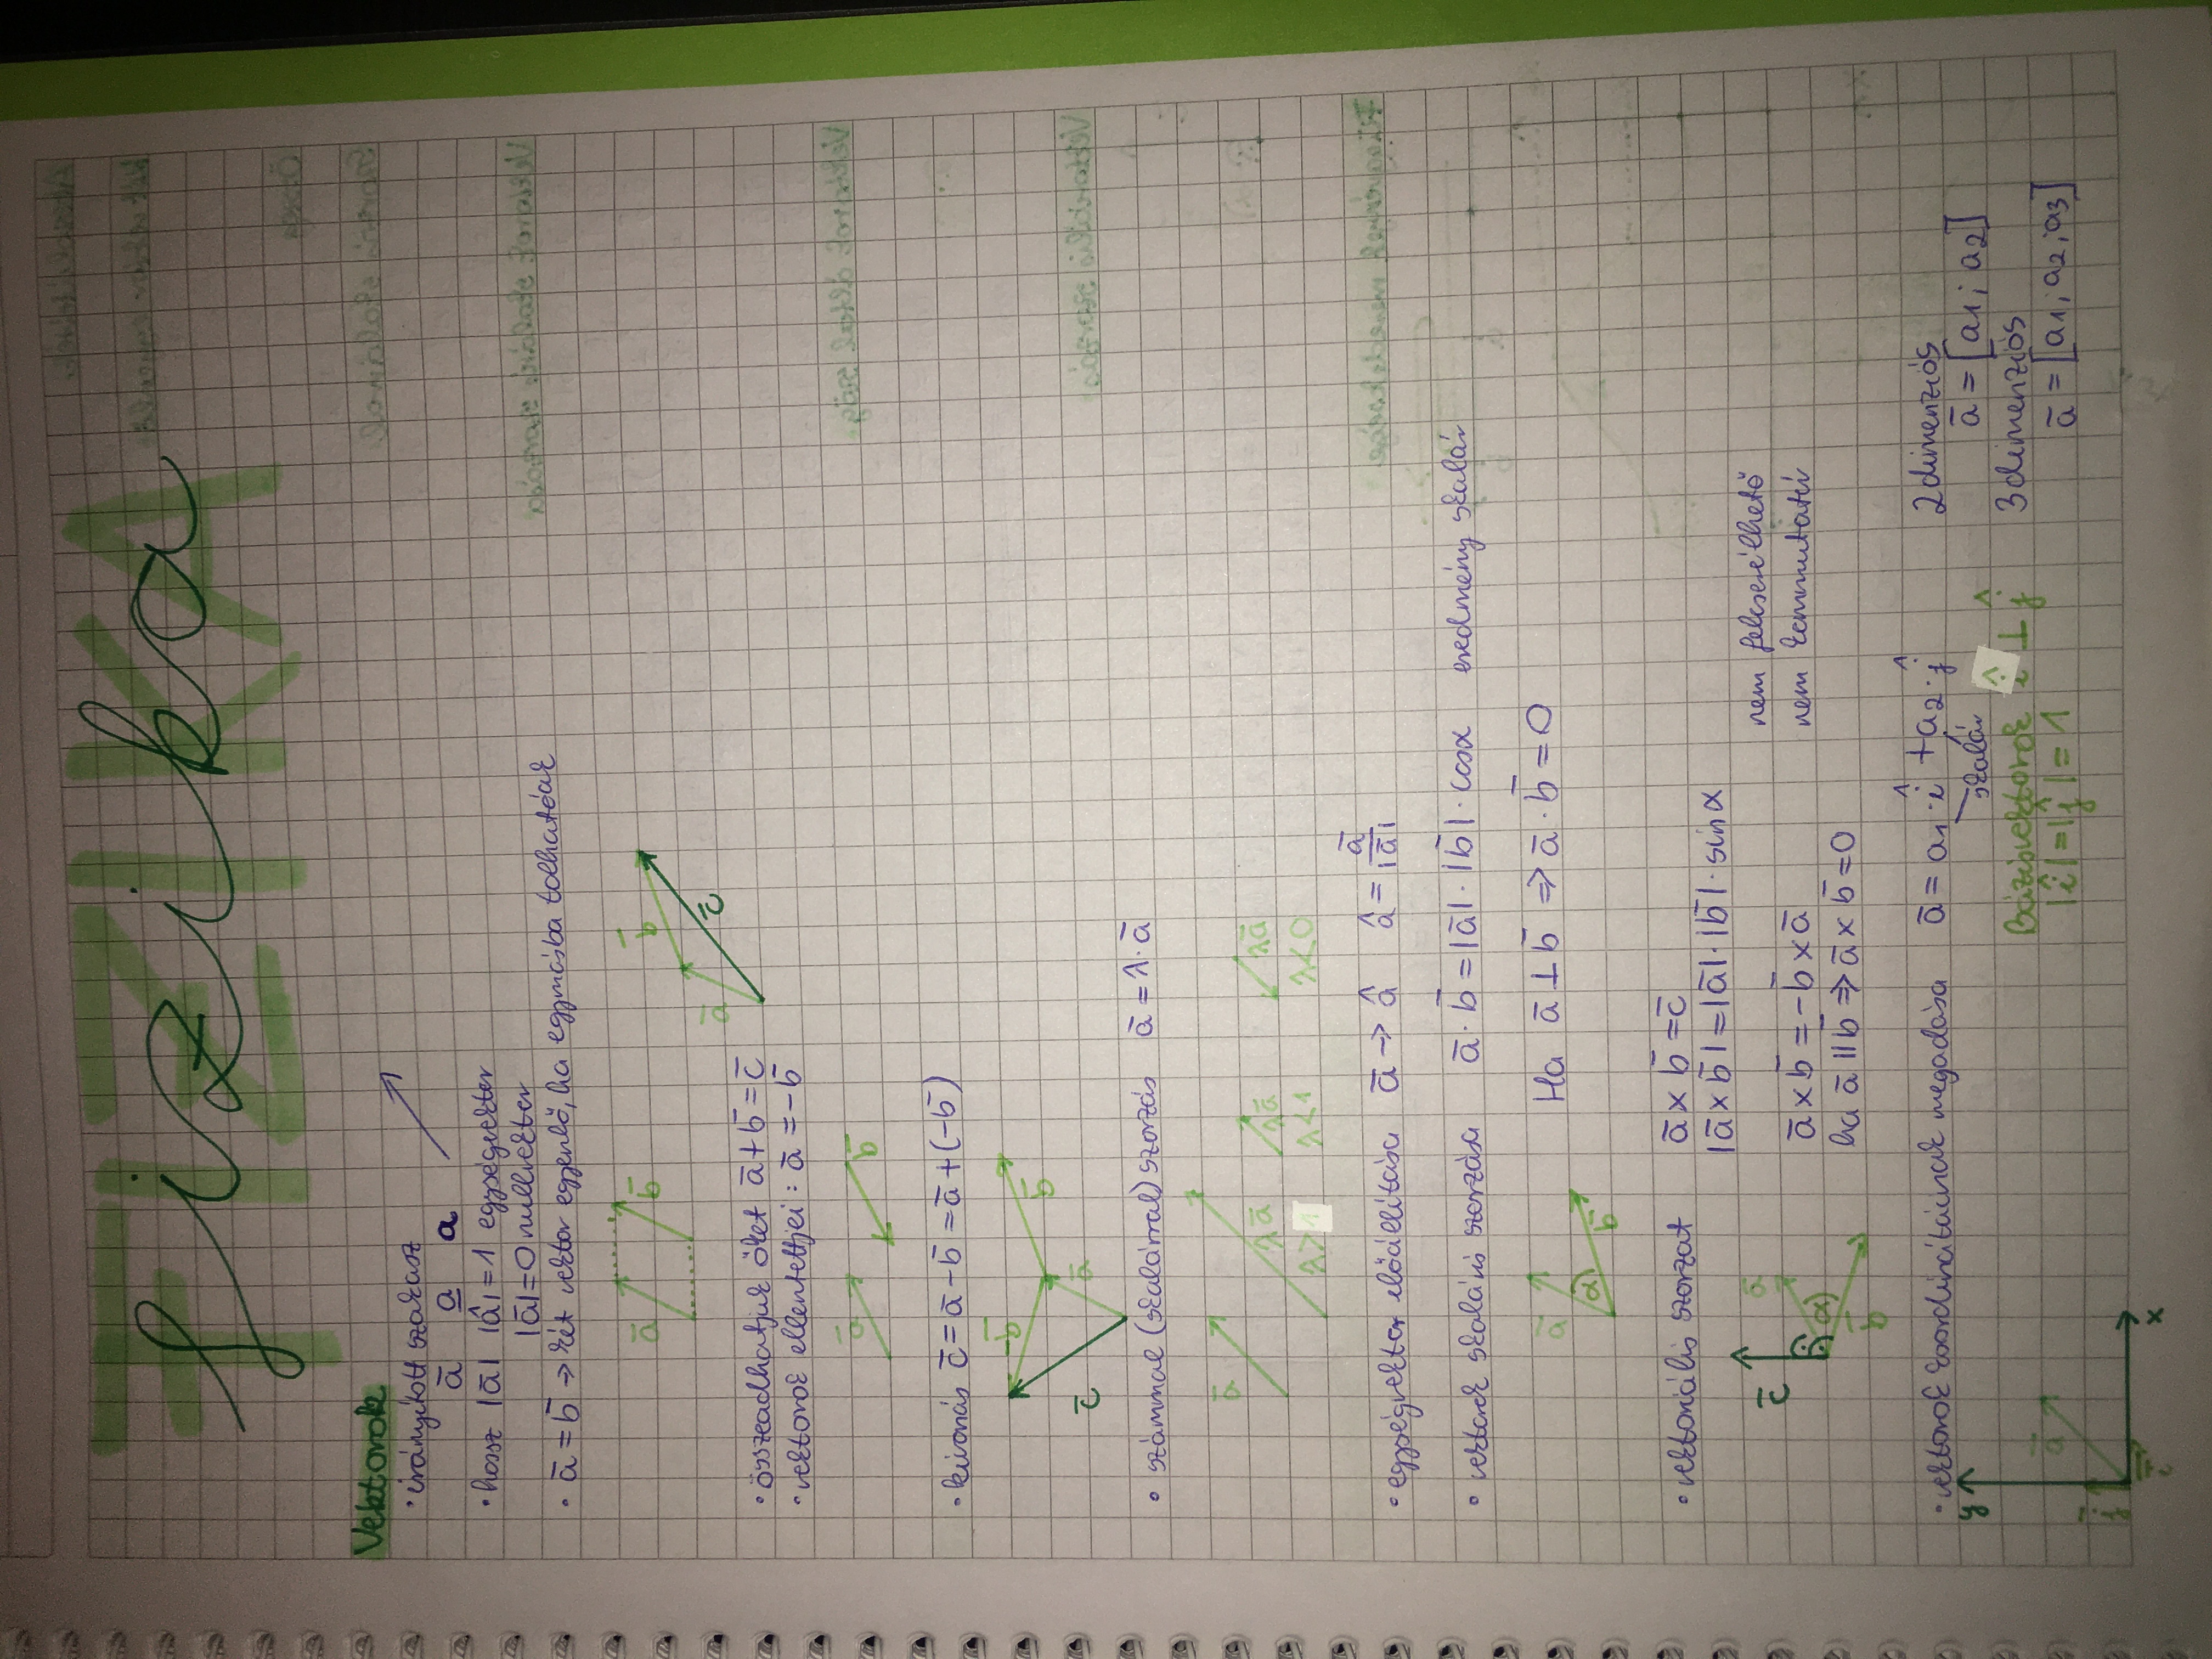 FIZIKA
fizika
Vektorok
• irányított szakasz
a̅ a̲ a
• hossz |a̅| |â|=1 egységvektor
|a̅|=0 nullvektor
• a̅ = b̅ → két vektor egyenlő, ha egymásba tolhatóak
a̅ b̅
a̅ b̅ c̅
• összeadhatjuk őket a̅ + b̅ = c̅
• vektorok ellentettjei: a̅ = -b̅
a̅ b̅
• kivonás c̅ = a̅ - b̅ = a̅ + (-b̅)
-b̅ b̅
c̅ a̅
• számmal (skalárral) szorzás a̅ = λ · a̅
a̅ λa̅ λa̅ λa̅
λ>1 λ<1 λ<0
• egységvektor előállítása a̅ → â â = a̅/|a̅|
• vektorok skaláris szorzása a̅ · b̅ = |a̅| · |b̅| · cosα eredmény skalár
Ha a̅ ⊥ b̅ ⇒ a̅ · b̅ = 0
a̅ α b̅
• vektoriális szorzat a̅ × b̅ = c̅
|a̅ × b̅| = |a̅| · |b̅| · sin α
c̅ a̅ α b̅
nem felcserélhető
a̅ × b̅ = -b̅ × a̅ nem kommutatív
ha a̅ || b̅ ⇒ a̅ × b̅ = 0
• vektorok koordinátáinak megadása a̅ = a₁ · î + a₂ · ĵ 2 dimenziós
y szalár a̅ = [a₁; a₂]
Bázisvektorok î ⊥ ĵ 3 dimenziós
|î| = |ĵ| = 1 a̅ = [a₁; a₂; a₃]
a̅
j
i x